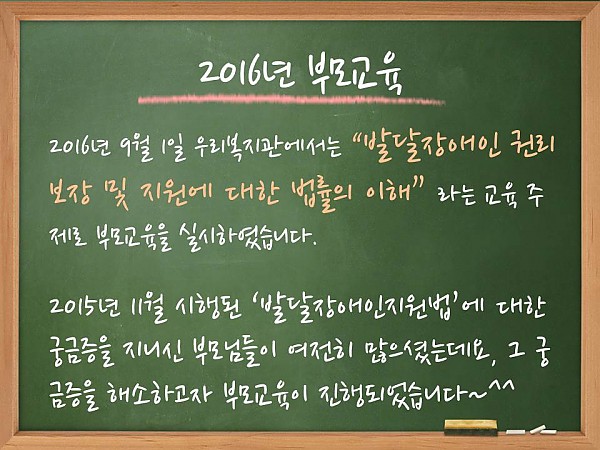 2016년 부모교육
2016년 9월 1일 우리복지관에서는 “발달장애인 권리
보장 및 지원에 대한 법률의 이해” 라는 교육 주
제로 부모교육을 실시하였습니다.
2015년 11월 시행된 ‘발달장애인지원법’에 대한
궁금증을 지니신 부모님들이 여전히 많으셨는데요, 그 궁
금증을 해소하고자 부모교육이 진행되었습니다~^^